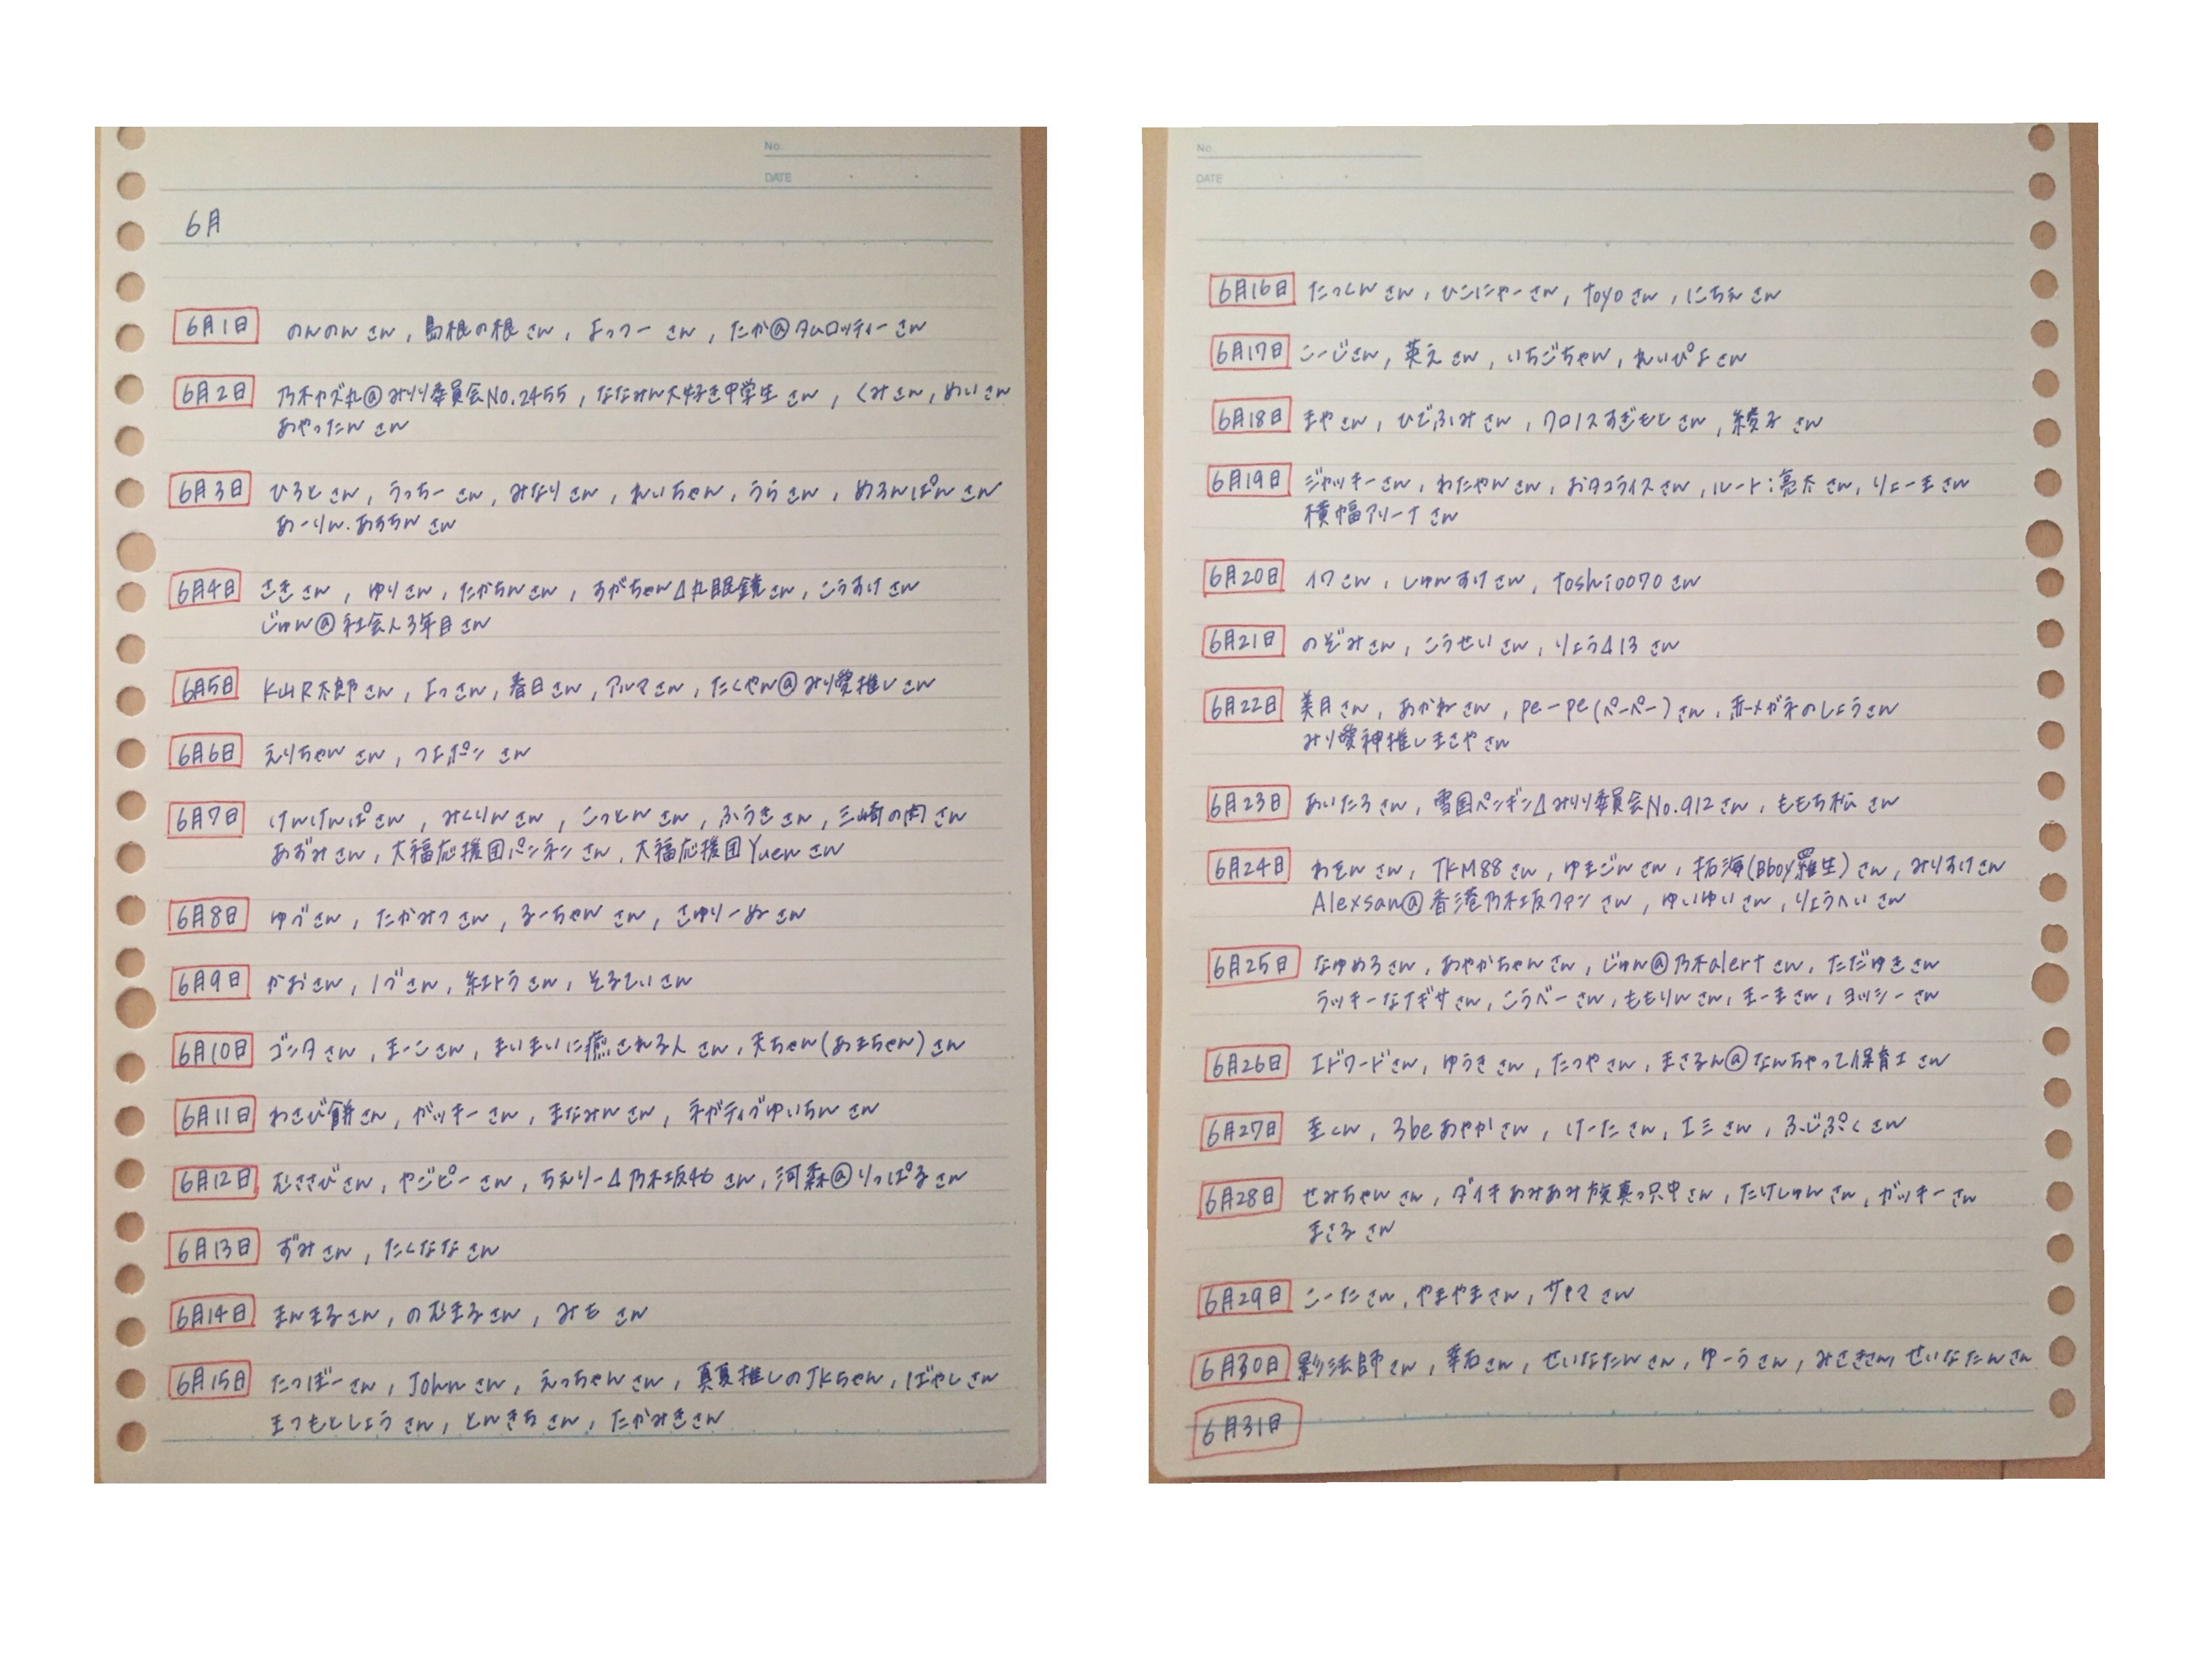 No.
DATE
6月
6月1日 のんのんさん, 島根の根さん, よっつーさん, たか@タムロッティーさん
6月2日 乃木ヤズ丸@みりり委員会No.2455, ななみん大好き中学生さん, くみさん, めいさん
あやったんさん
6月3日 ひろとさん, うっちーさん, みなりさん, れいちゃん, うらさん, めろんぱんさん
あーりん.あすちんさん
6月4日 さきさん, ゆりさん, たかちんさん, すがちゃん△丸眼鏡さん, こうすけさん
じゅん@社会人3年目さん
6月5日 K山R太郎さん, よっさん, 春日さん, アルマさん, たくやん@みり愛推しさん
6月6日 えりちゃんさん, つよポンさん
6月7日 けんけんぱさん, みくりんさん, こっとんさん, ふうきさん, 三崎の肉さん
あずみさん, 大福応援団ペンネンさん, 大福応援団Yuenさん
6月8日 ゆづさん, たかみつさん, るーちゃんさん, さゆりーぬさん
6月9日 かおさん, ノブさん, 紅トラさん, そるてぃさん
6月10日 ゴンタさん, まーこさん, まいまいに癒される人さん, 天ちゃん(あまちゃん)さん
6月11日 わさび餅さん, ガッキーさん, まなみんさん, ネガティブゆいちんさん
6月12日 むささびさん, ヤジピーさん, ちえりー△乃木坂46さん, 河森@りっぱるさん
6月13日 ずみさん, たくななさん
6月14日 まんまるさん, のむまるさん, みもさん
6月15日 たつぼーさん, Johnさん, えっちゃんさん, 真夏推しのJKちゃん, ばやしさん
まつもとしょうさん, とんきちさん, たかみきさん
No.
DATE
6月16日 たっくんさん, ひこにゃーさん, toyoさん, にちえさん
6月17日 こーじさん, 英えさん, いちごちゃん, れいぴよさん
6月18日 まやさん, ひでふみさん, クロノスすぎもとさん, 綾子さん
6月19日 ジャッキーさん, わたやんさん, おタコライスさん, ルート:亮太さん, りょーまさん
横幅アリーナさん
6月20日 イワさん, しゅんすけさん, toshi0070さん
6月21日 のぞみさん, こうせいさん, りょう△13さん
6月22日 美月さん, あかねさん, pe-pe(ペーペー)さん, 赤メガネのしょうさん
みり愛神推しまさやさん
6月23日 あいたろさん, 雪国ペンギン△みりり委員会No.912さん, ももち松さん
6月24日 わをんさん, TKM88さん, ゆまごんさん, 拓海(Bboy羅生)さん, みりすけさん
Alexsan@香港乃木坂ファンさん, ゆいゆいさん, りょうへいさん
6月25日 なゆめろさん, あやかちゃんさん, じゅん@乃木alertさん, ただゆきさん
ラッキーなイギサさん, こうべーさん, ももりんさん, まーまさん, ヨッシーさん
6月26日 エドワードさん, ゆうきさん, たつやさん, まさるん@なんちゃって保育士さん
6月27日 至くん, 3beあやかさん, けーたさん, エミさん, ふじぷくさん
6月28日 せみちゃんさん, ダイキあみあみ放真っ只中さん, たけしゅんさん, ガッキーさん
まさるさん
6月29日 こーたさん, やまやまさん, サヤマさん
6月30日 影法師さん, 幸石さん, せいなたんさん, ゆーうさん, みさきさん, せいなたんさん
6月31日